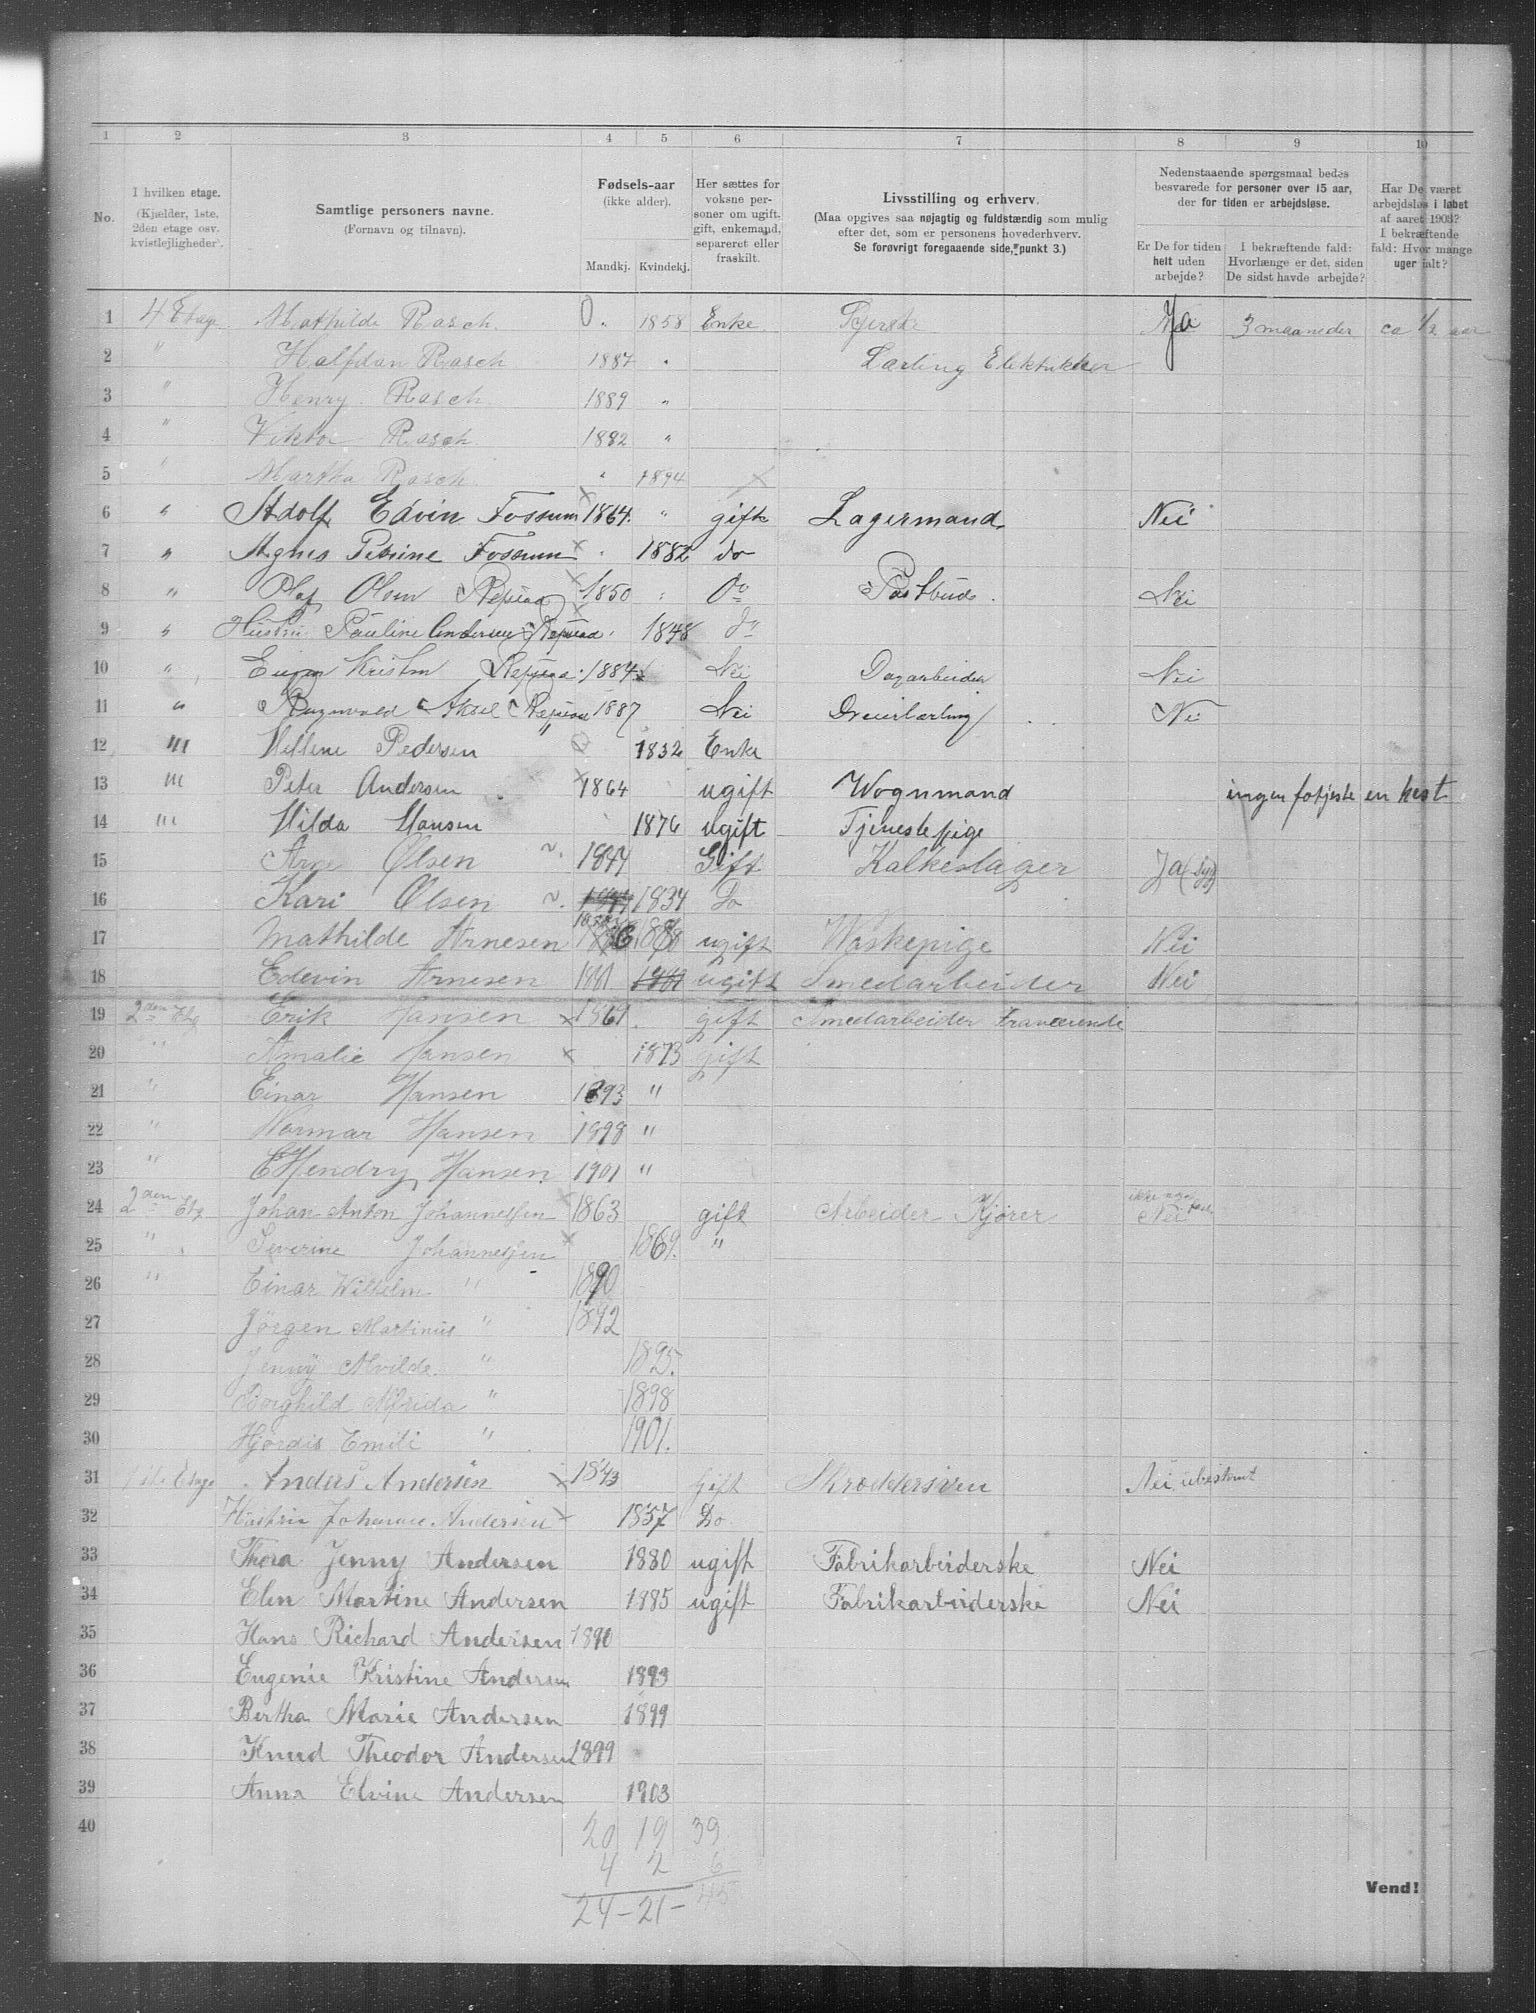 1 2 3 4 5 6 7 8 9 10
No. I hvilken etage. (Kjælder, 1ste, 2den etage osv. kvistlejligheder). Samtlige personers navne. (Fornavn og tilnavn). Fødsels-aar (ikke alder). Mandkj. Kvindekj. Her sættes for voksne personer om ugift, gift, enkemand, separeret eller fraskilt. Livsstilling og erhverv. (Maa opgives saa nøjagtig og fuldstændig som mulig efter det, som er personens hovederhverv. Se forøvrigt foregaaende side, punkt 3.) Nedenstaaende spørgsmaal bedes besvarede for personer over 15 aar, der for tiden er arbejdsløse. Er De for tiden helt uden arbejde? I bekræftende fald: Hvorlænge er det, siden De sidst havde arbejde? Har De været arbejdsløs i løbet af aaret 1903? I bekræftende fald: Hvor mange uger ialt?
1 4 Etage Mathilde Rasch 0 1858 Enke Syerske Ja 3 maaneder ca 1/2 aar
2 " Halfdan Rasch 1887 " Lærling Elektriker
3 " Henry Rasch 1889 "
4 " Viktor Rasch 1882 "
5 " Martha Rasch " 1894
6 " Adolf Edvin Fossum 1864 " gift Lagermand Nei
7 " Agnes Petrine Fossum " 1882 do
8 " Olaf Olsen 1850 " Do Postbud Nei
9 " Hustru Pauline Andersen 1848 do
10 " 1884 Nei Dagarbeider Nei
11 " Ragnvald Aksel 1887 Nei Dreierlærling Nei
12 " Hellene Pedersen 1832 Enke
13 " Peter Andersen 1864 ugift Wognmand ingen fotjeste en hest
14 " Hilda Hansen 1876 ugift Tjenestepige
15 Arne Olsen 1847 Gift Kalkeslager Ja (syg)
16 Kari Olsen 1834 Do
17 Mathilde Arnesen ugift Waskepige Nei
18 Edevin Arnesen 1881 ugift Smedarbeider Nei
19 2den Etg Erik Hansen 1867 gift Smedarbeider Fraværende
20 " Amalie Hansen 1873 gift
21 " Einar Hansen 1893 "
22 " Warmar Hansen 1898 "
23 " Hendry Hansen 1901 "
24 2den Etg Johan Anton Johannessen 1863 gift Arbeider Kjører Nei
25 " Severine Johannessen 1869. "
26 " Einar Wilhelm " 1890
27 Jörgen Martinus " 1892
28 Jenny Alvilde " 1895.
29 Borghild Alfrida " 1898
30 Hjördis Emili " 1901.
31 1ste Etage Anders Andersen 1843 Gift Skreddersven Nei ubestemt
32 Hustru Johanne Andersen 1857 Do
33 Thora Jenny Andersen 1880 ugift Fabrikarbeiderske Nei
34 Elen Martine Andersen 1885 ugift Fabrikarbeiderske Nei
35 Hans Richard Andersen 1890
36 Eugenie Kristine Andersen 1893
37 Bertha Marie Andersen 1899
38 Knud Theodor Andersen 1899
39 Anna Elvine Andersen 1903
40 20 19 39
4 2 6
24 – 21 – 45
Vend!